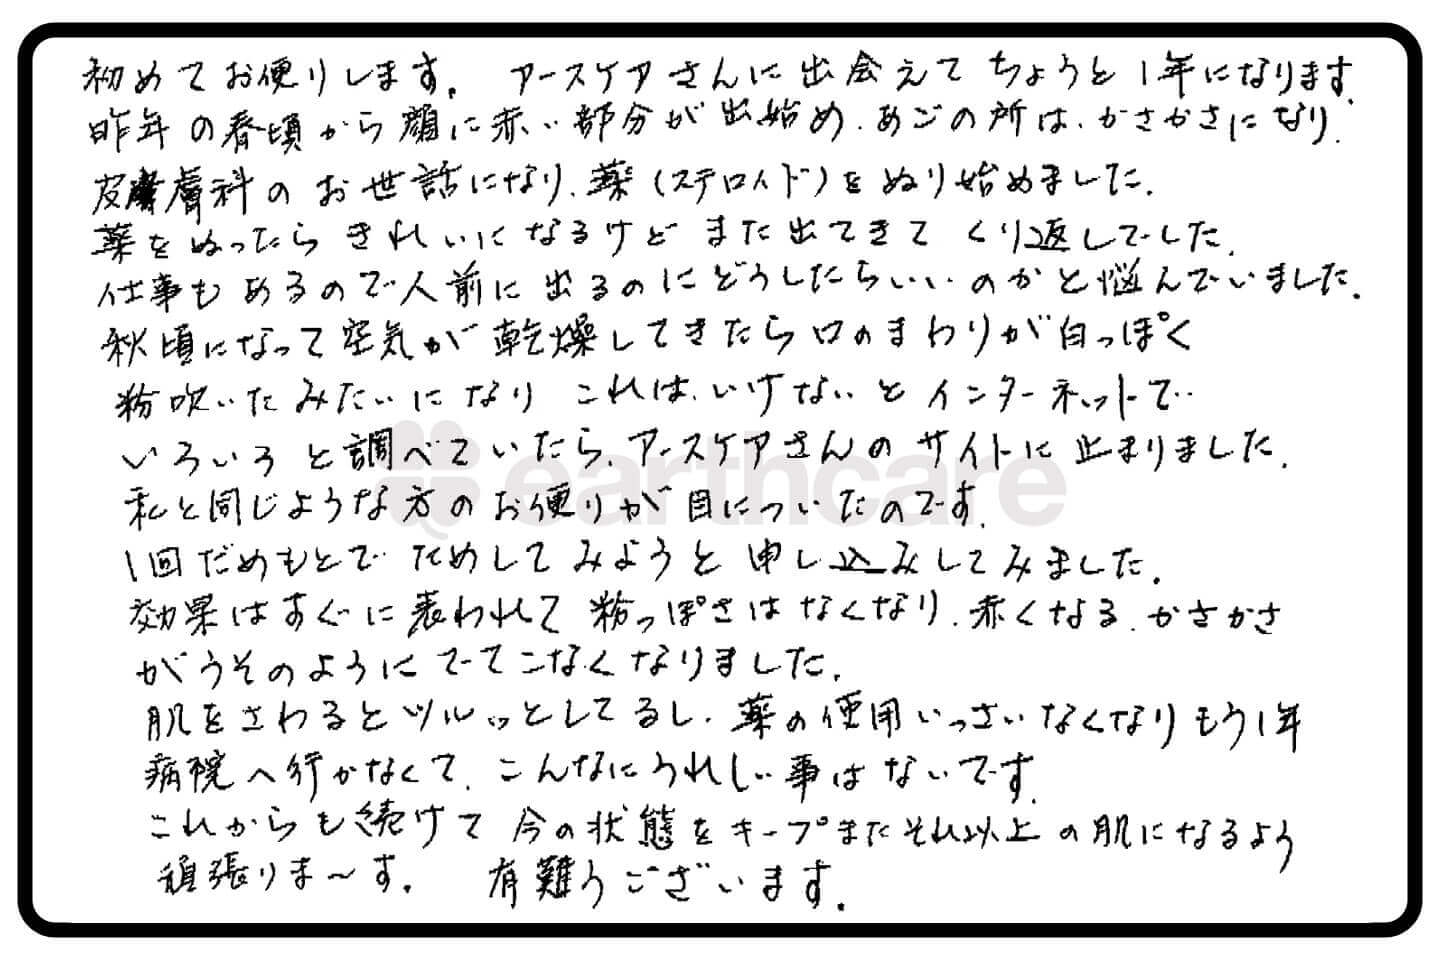 初めてお便りします。 アースケアさんに出会えてちょうど1年になります。
昨年の春頃から顔に赤い部分が出始め、あごの所は、かさかさになり、
皮膚科のお世話になり、薬(ステロイド)をぬり始めました。
薬をぬったらきれいになるけどまた出てきてくり返しでした。
仕事もあるので人前に出るのにどうしたらいいのかと悩んでいました。
秋頃になって空気が乾燥してきたら口のまわりが白っぽく
粉吹いたみたいになり これは、いけないとインターネットで
いろいろと調べていたら、アースケアさんのサイトに止まりました。
earthcare
私と同じような方のお便りが目についたのです。
1回だめもとでためしてみようと申し込みしてみました。
効果はすぐに表われて粉っぽさはなくなり、赤くなる、かさかさ
がうそのようにでてこなくなりました。
肌をさわるとツルッとしてるし、薬の使用いっさいなくなりもう1年
病院へ行かなくて、こんなにうれしい事はないです。
これからも続けて今の状態をキープまたそれ以上の肌になるよう
頑張りま〜す。 有難うございます。